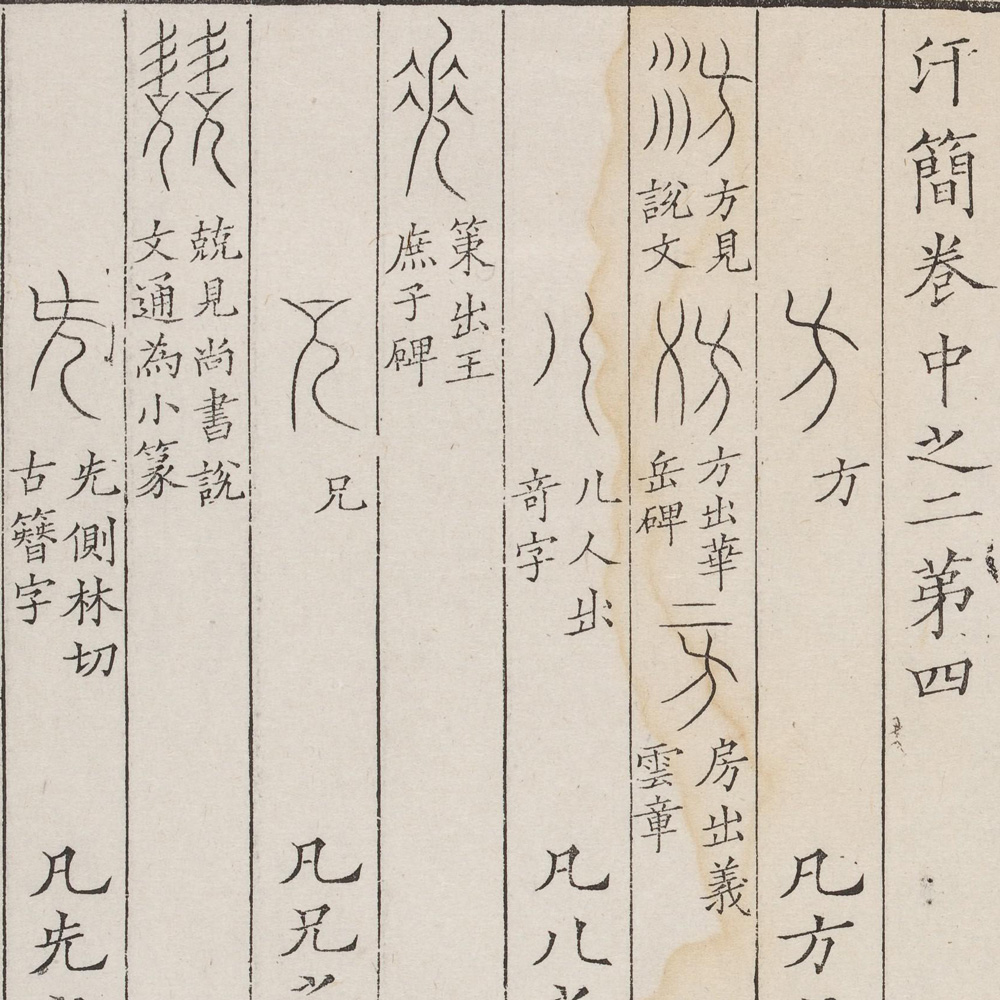 汗簡卷中之二第四
方 凡方
方見說文 方出華岳碑 房出義雲章
儿人出奇字 凡儿
策出王庶子碑
兄 凡兄之
兢見尚書說文通為小篆
兂側林切古簪字 凡兂